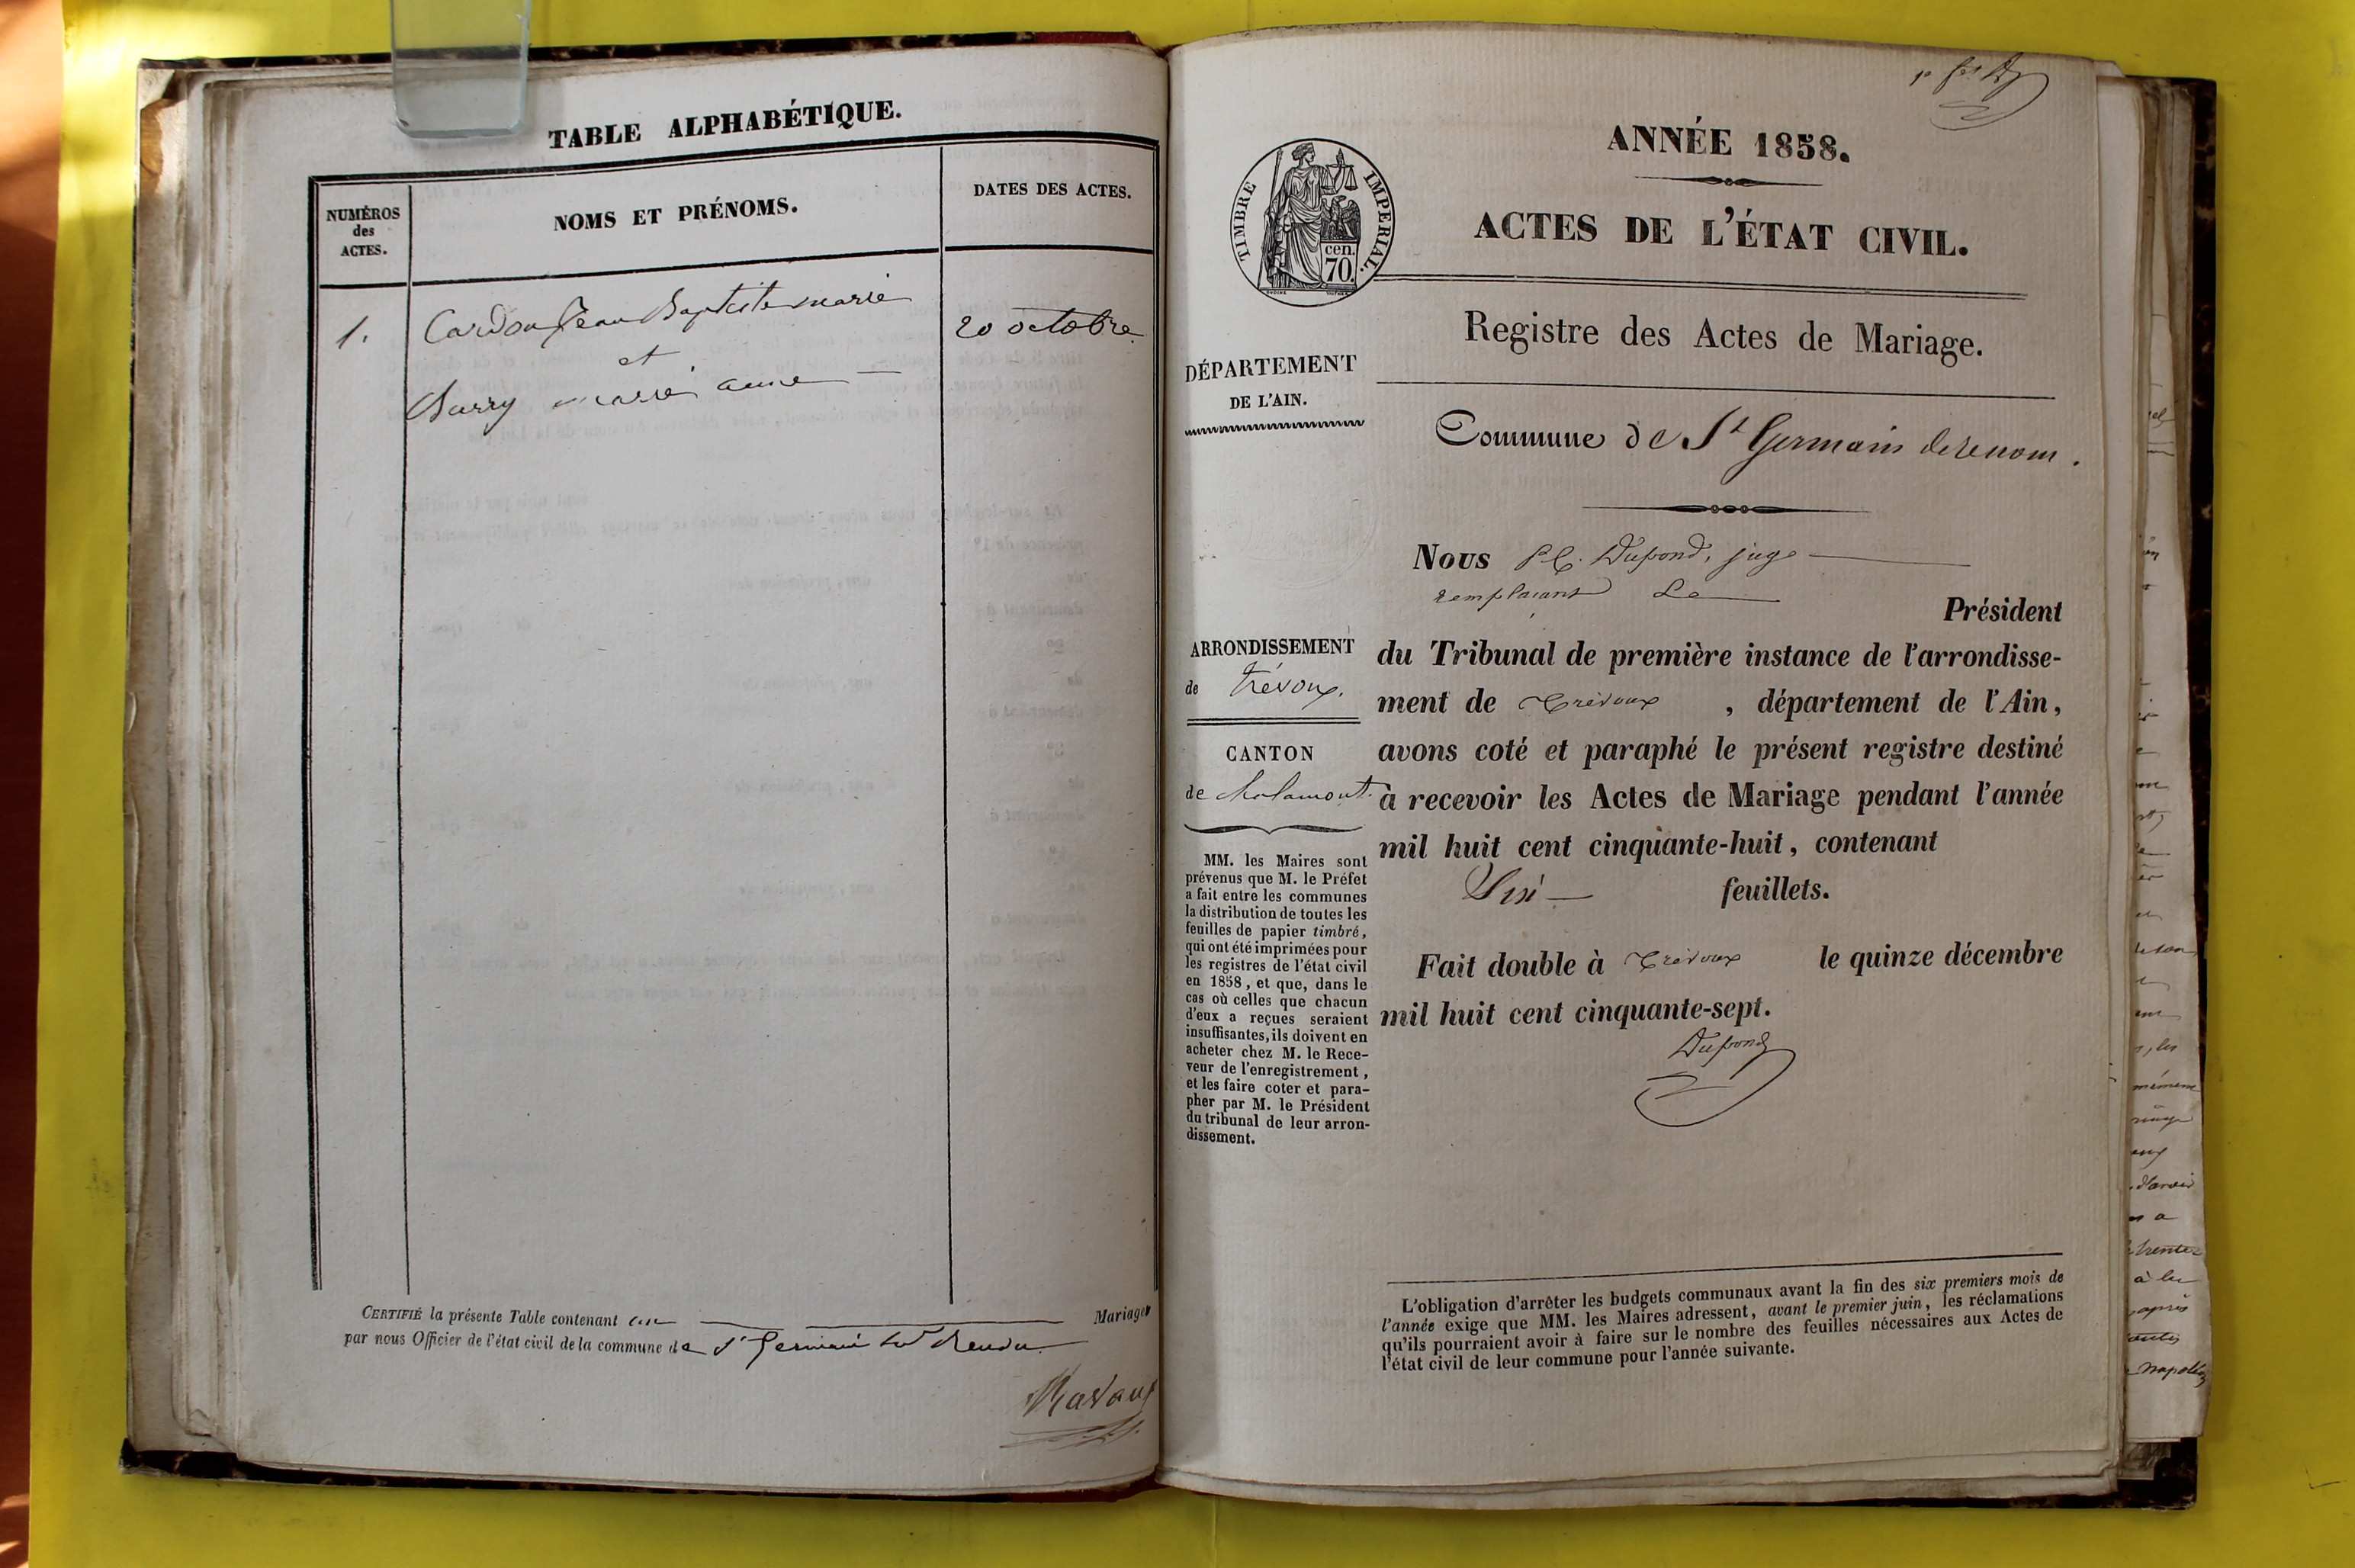 TABLE ALPHABÉTIQUE.
NUMÉROS
des
ACTES.
NOMS ET PRÉNOMS.
DATES DES ACTES.
1.
Cardon Jean Baptiste marie
20 octobre
et
Burry marie anne
CERTIFIÉ la présente Table contenant un Mariages
par nous Officier de l'état civil de la commune de St Germain
ANNÉE 1858.
TIMBRE IMPERIAL.
cen.
70.
ACTES DE L'ÉTAT CIVIL.
Registre des Actes de Mariage.
DÉPARTEMENT
DE L'AIN.
Commune de St Germain de renom.
Nous Dupond, juge
remplaçant Le
Président
ARRONDISSEMENT
de Trévoux.
du Tribunal de première instance de l'arrondisse-
ment de Trévoux , département de l'Ain,
CANTON
de Chalamont.
avons coté et paraphé le présent registre destiné
à recevoir les Actes de Mariage pendant l'année
mil huit cent cinquante-huit, contenant
Six feuillets.
Fait double à Trévoux le quinze décembre
mil huit cent cinquante-sept.
Dupond
MM. les Maires sont
prévenus que M. le Préfet
a fait entre les communes
la distribution de toutes les
feuilles de papier timbré,
qui ont été imprimées pour
les registres de l'état civil
en 1858, et que, dans le
cas où celles que chacun
d'eux a reçues seraient
insuffisantes, ils doivent en
acheter chez M. le Rece-
veur de l'enregistrement,
et les faire coter et para-
pher par M. le Président
du tribunal de leur arron-
dissement.
L'obligation d'arrêter les budgets communaux avant la fin des six premiers mois de
l'année exige que MM. les Maires adressent, avant le premier juin, les réclamations
qu'ils pourraient avoir à faire sur le nombre des feuilles nécessaires aux Actes de
l'état civil de leur commune pour l'année suivante.